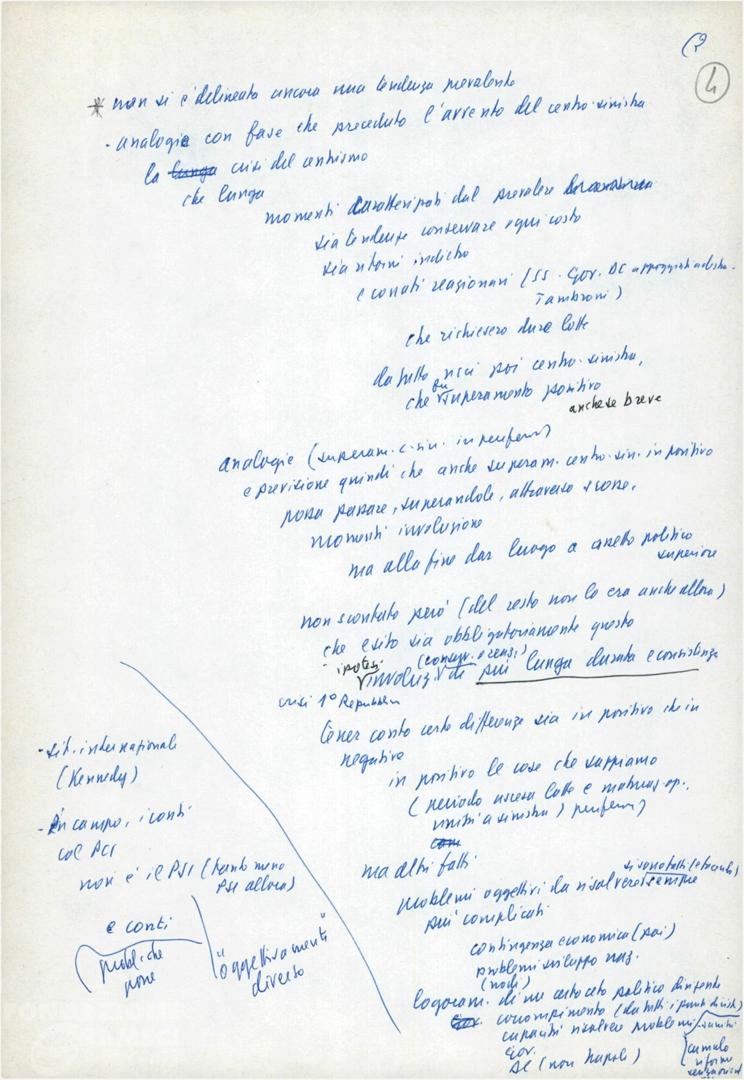 4
* non si è delineata ancora una tendenza prevalente
- analogie con fase che preceduto l'avvento del centro-sinistra
la lunga crisi del centrismo
che lunga
momenti caratterizzati dal prevalere
sia tendenze conservare ogni costo
sia ritorni indietro
e conati reazionari (SS. Gov. DC appoggiati a destra -
Tambroni)
che richiesero dure lotte
da tutto uscì poi centro-sinistra,
che fu superamento positivo
anche se breve
analogie (superam. c-sin. in
e previsione quindi che anche superam. centro-sin. in positivo
possa passare, superandole, attraverso scosse,
momenti involuzione
ma alla fine dar luogo a assetto politico
superiore
non scontato però (del resto non lo era anche allora)
che esito sia obbligatoriamente questo
ipotesi (conserv. e reaz.)
involuz. di più lunga durata e consistenza
crisi 1° Repubblica
tener conto certe differenze sia in positivo che in
negativo
in positivo le cose che sappiamo
(periodo ascesa lotte e maturaz. op.,
unità a sinistra)
ma altri fatti
problemi oggettivi da risolvere si sono fatti
sempre
più complicati
contingenza economica (poi)
problemi sviluppo naz.
(nodi)
logoram. di un certo ceto politico dirigente
(da tutti i punti di vista)
capacità risolvere problemi
Gov.
DC (non Napoli)
cumulo
riforme
- sit. internazionale
(Kennedy)
- in campo, i conti
col PCI
non è il PSI (tanto meno
PSI allora)
e conti
problemi che
pone
"oggettivamente"
diverso